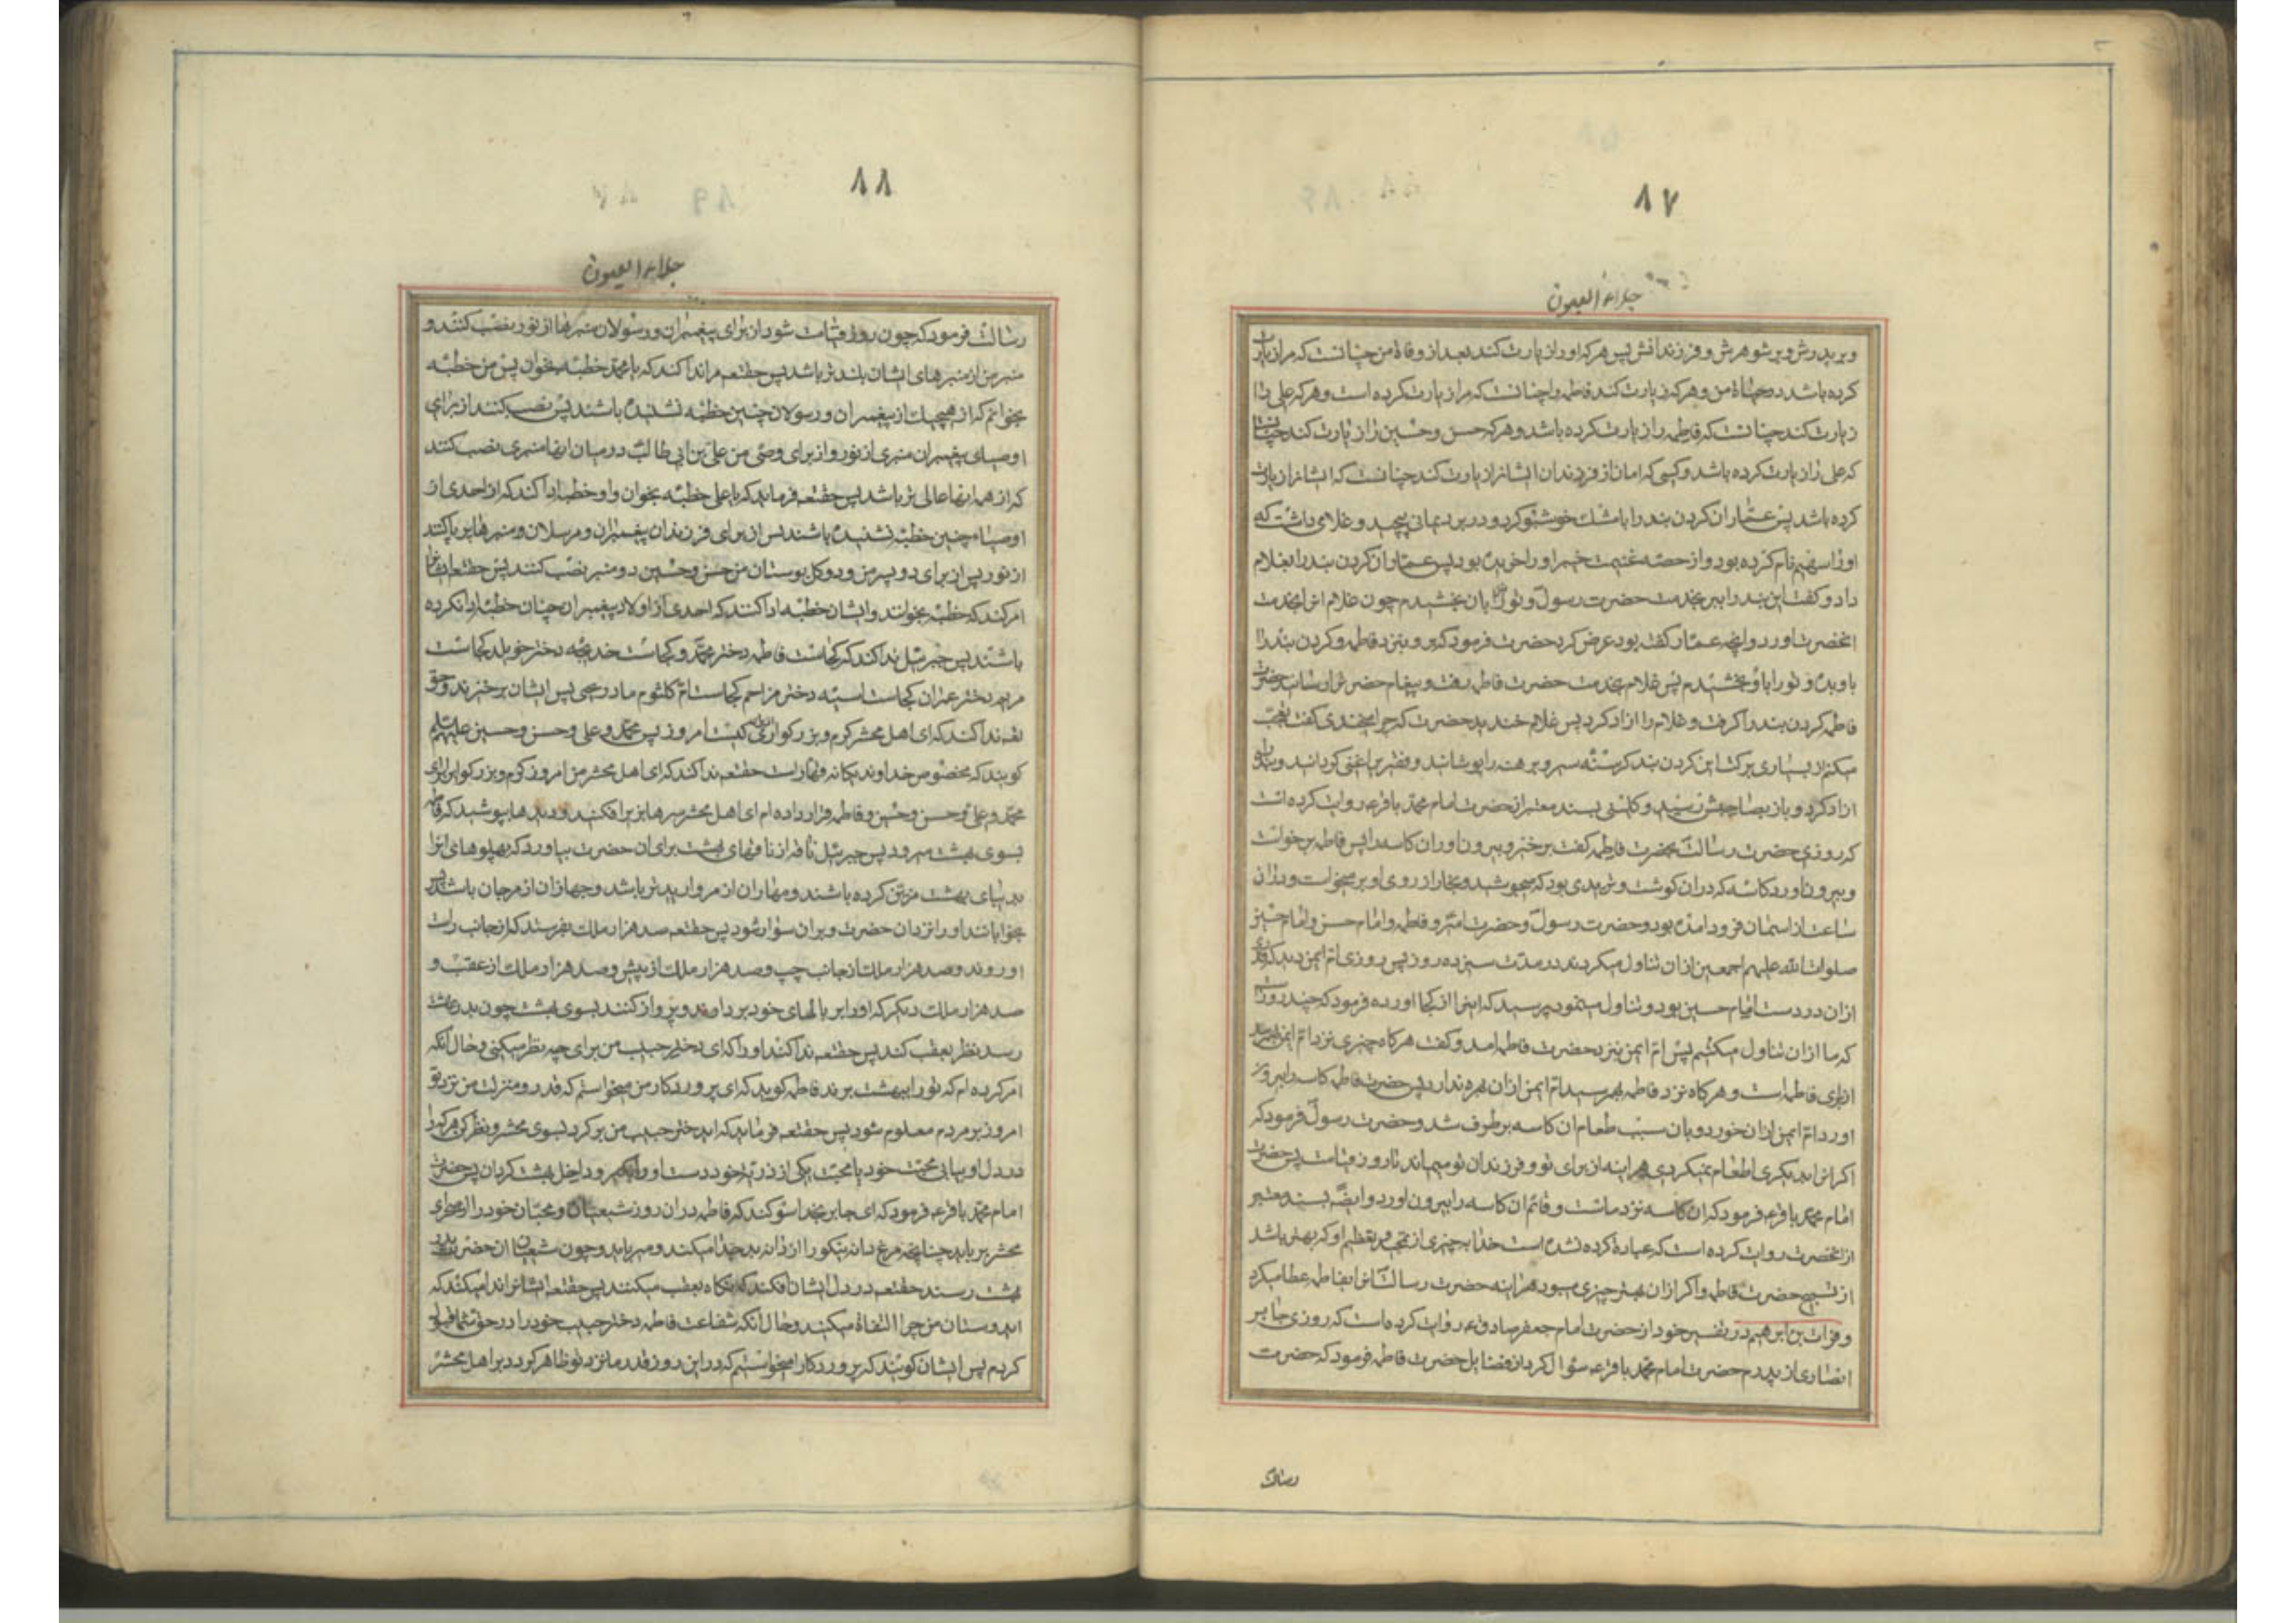 ۸۷
جلاء العیون
و بر پدرش و بر شوهرش و فرزندانش پس هر که او را زیارت کند بعد از وفاة من چنانست که مرا زیارت
کرده باشد در حیاة من و هر که زیارت کند فاطمه را چنانست که مرا زیارت کرده است و هر که علی را
زیارت کند چنانست که فاطمه را زیارت کرده باشد و هر که حسن و حسین را زیارت کند چنانست
که علی را زیارت کرده باشد و کسی که امامان از فرزندان ایشانرا زیارت کند چنانست که ایشانرا زیارت
کرده باشد پس عمار ان کردن بند را با مشک خوشبو کرد و در برد یمانی پیچید و غلامی داشت که
او را سهم نام کرده بود و از حصه غنیمت خیبر او را خریده بود پس عمار ان کردن بند را بغلام
داد و گفت این بند را ببر بخدمت حضرت رسول و تو را بان بخشیدم چون غلام انرا بخدمت
انحضرت اورد و انچه عمار گفته بود عرض کرد حضرت فرمود که برو بنزد فاطمه و کردن بند را
باو بده و تو را باو بخشیدم پس غلام بخدمت حضرت فاطمه رفت و پیغام حضرترا رسانید حضرت
فاطمه کردن بند را گرفت و غلام را ازاد کرد پس غلام خندید حضرت گفت چرا میخندی گفت تعجب
میکنم از بسیاری برکت این کردن بند که گرسنه سیر و برهنه را پوشانید و فقیر را غنی کردانید و بنده
ازاد کرد و باز بصاحبش رسید و کلینی بسند معتبر از حضرت امام محمد باقر ع روایت کرده است
که روزی حضرت رسالت بحضرت فاطمه گفت برخیز و بیرون اور ان کاسه را پس فاطمه برخواست
و بیرون اورد کاسه که در ان گوشت و تریدی بود که میجوشید و بخار از روی او بر میخواست و در ان
ساعت از اسمان فرود امده بود و حضرت رسول و حضرت امیر و فاطمه و امام حسن و امام حسین
صلوات الله علیهم اجمعین از ان تناول میکردند در مدت سیزده روز پس روزی ام ایمن دید که قدری
از ان در دست امام حسین بود و تناول مینمود پرسید که اینرا از کجا اورده فرمود که چند روز است
که ما از ان تناول میکنیم پس ام ایمن بنزد حضرت فاطمه امد و گفت هرگاه چیزی نزد ام ایمن بهم رسد
از برای فاطمه است و هرگاه نزد فاطمه بهم رسید ام ایمن از ان بهره ندارد پس حضرت فاطمه کاسه را بیرون
اورد ام ایمن از ان خورد و بان سبب طعام ان کاسه بر طرف شد و حضرت رسول فرمود که
اگر انرا بدیگری اطعام نمیکردی هر اینه از برای تو و فرزندان تو میماند تا روز قیامت پس حضرت
امام محمد باقر ع فرمود که ان کاسه نزد ماست و قائم ان کاسه را بیرون اورد و ایضا بسند معتبر
از انحضرت روایت کرده است که عبادة کرده نشده است خدا به چیزی از تمجید و تعظیم او که بهتر باشد
از تسبیح حضرت فاطمه و اگر از ان بهتر چیزی میبود هر اینه حضرت رسالت انرا بفاطمه عطا میکرد
و فرات بن ابرهیم در تفسیر خود از حضرت امام جعفر صادق ع روایت کرده است که روزی جابر
انصاری از پدرم حضرت امام محمد باقر ع سؤال کرد از فضایل حضرت فاطمه فرمود که حضرت
رسالت
۸۸
جلاء العیون
رسالت فرمود که چون روز قیامت شود از برای پیغمبران و رسولان منبرها از نور نصب کنند و
منبر من از منبرهای ایشان بلندتر باشد پس حقتعم مرا ندا کند که یا محمد خطبه بخوان پس من خطبه
بخوانم که از هیچیک از پیغمبران و رسولان چنین خطبه نشنیده باشند پس نصب کنند از برای
اوصیای پیغمبران منبری از نور و از برای وصی من علی بن ابی طالب در میان انها منبری نصب کنند
که از همه انها عالی تر باشد پس حقتعم فرماید که یا علی خطبه بخوان و او خطبه ادا کند که از احدی از
اوصیاء چنین خطبه نشنیده باشند پس از برای فرزندان پیغمبران و مرسلان و منبرها بر پا کنند
از نور پس از برای دو پسر من و دو گل بوستان من حسن و حسین دو منبر نصب کنند پس حقتعم ایشانرا
امر کند که خطبه بخوانند و ایشان خطبه ادا کنند که احدی از اولاد پیغمبران چنان خطبه ادا نکرده
باشند پس جبرئیل ندا کند که کجاست فاطمه دختر محمد و کجاست خدیجه دختر خویلد کجاست
مریم دختر عمران کجاست اسیه دختر مزاحم کجاست ام کلثوم مادر یحیی پس ایشان برخیزند و حق
تعم ندا کند که ای اهل محشر کرم و بزرگواری از کیست امروز پس محمد و علی و حسن و حسین علیهم السلام
گویند که مخصوص خداوند یگانه قهار است حقتعم ندا کند که ای اهل محشر من امروز کرم و بزرگواری برای
محمد و علی و حسن و حسین و فاطمه قرار داده ام ای اهل محشر سرها بزیر افکنید و دیدها بپوشید که فاطمه
بسوی بهشت میرود پس جبرئیل ناقه از ناقهای بهشت برای ان حضرت بیاورد که پهلوهای انرا
بدیبای بهشت مزین کرده باشند و مهار ان از مروارید تر باشد و جهاز ان از مرجان باشد پس
بخواباند او را نزد ان حضرت و بر ان سوار شود پس حقتعم صد هزار ملک بفرستد که از جانب راست
او روند و صد هزار ملک از جانب چپ و صد هزار ملک از پیش و صد هزار ملک از عقب و
صد هزار ملک دیگر که او را بر بالهای خود بردارند و پرواز کنند بسوی بهشت چون بدر بهشت
رسد نظر بعقب کند پس حقتعم ندا کند او را که ای دختر حبیب من برای چه نظر میکنی و حال انکه
امر کرده ام که تو را ببهشت برند فاطمه گوید که ای پروردگار من میخواستم که قدر و منزلت من نزد تو
امروز بر مردم معلوم شود پس حقتعم فرماید که اید ختر حبیب من برگرد بسوی محشر و نظر کن هر که را
در دل او بیابی محبت خود یا محبت یکی از ذریه خود دست او و بگیر و داخل بهشت کردان پس حضرت
امام محمد باقر ع فرمود که ای جابر بخدا سوگند که فاطمه در ان روز شیعیان و محبان خود را از صحرای
محشر بر باید چنانچه مرغ دانه نیکو را از دانه بد جدا میکند و میرباید و چون شیعیان ان حضرت بدر
بهشت رسند حقتعم در دل ایشان افکند که نگاه بعقب میکنند پس حقتعم ایشانرا ندا میکند که
ایدوستان من چرا التفاة میکنید و حال انکه شفاعت فاطمه دختر حبیب خود را در حق شما قبول
کردم پس ایشان گویند که پروردگارا میخواستیم که در این روز قدر ما نزد تو ظاهر گردد بر اهل محشر